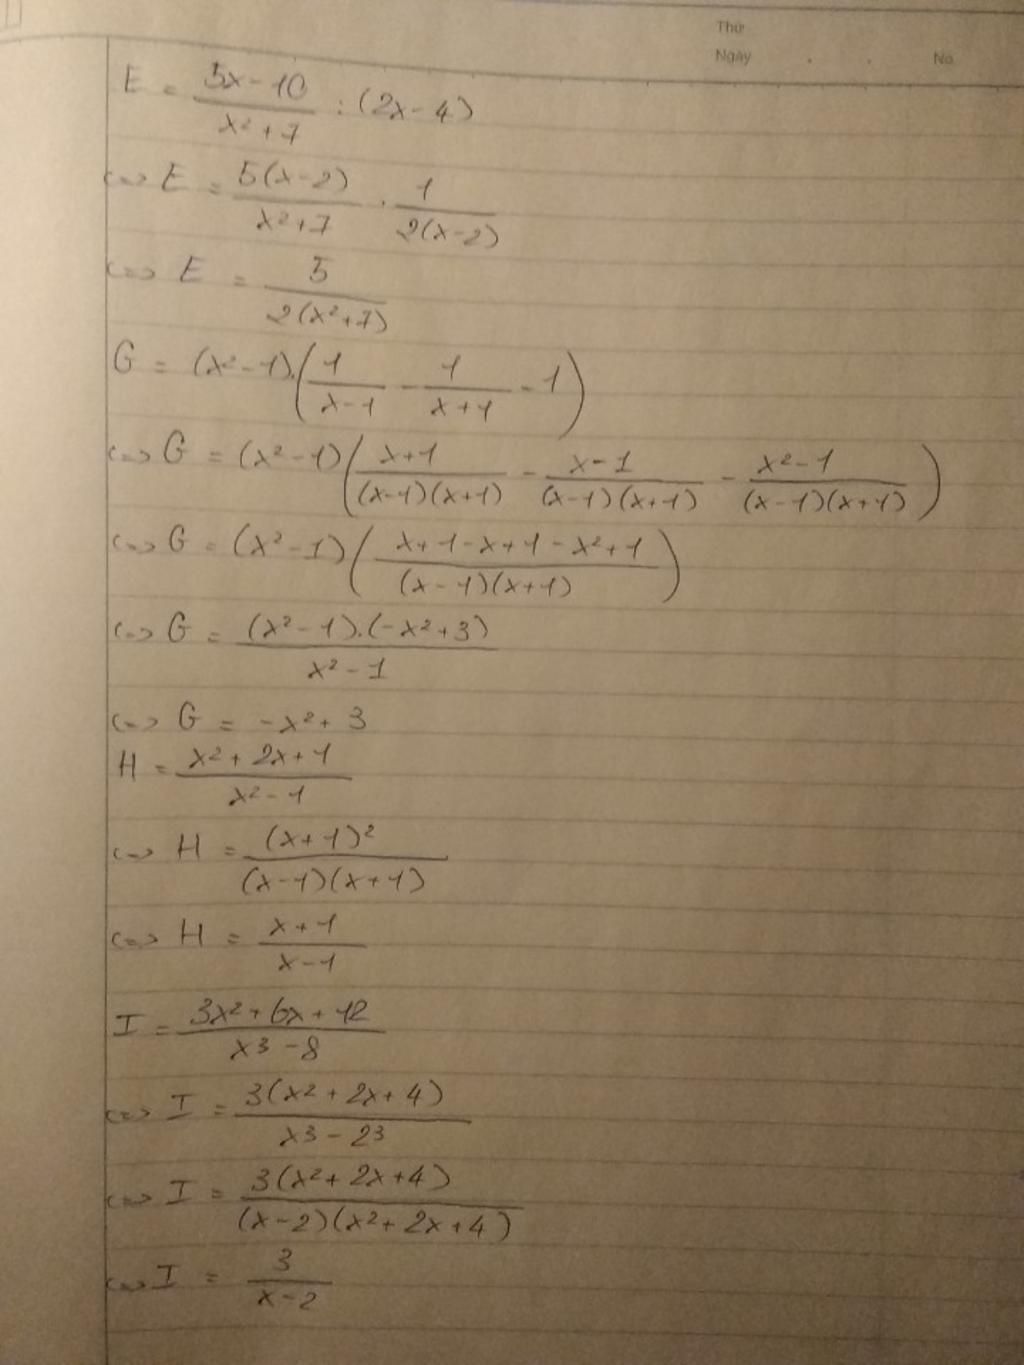 Thứ
Ngày . . No
E = (5x - 10)/(x² + 7) : (2x - 4)
<=> E = 5(x - 2)/(x² + 7) . 1/(2(x - 2))
<=> E = 5/(2(x² + 7))
G = (x² - 1).(1/(x - 1) - 1/(x + 1) - 1)
<=> G = (x² - 1)((x + 1)/((x - 1)(x + 1)) - (x - 1)/((x - 1)(x + 1)) - (x² - 1)/((x - 1)(x + 1)))
<=> G = (x² - 1)((x + 1 - x + 1 - x² + 1)/((x - 1)(x + 1)))
<=> G = (x² - 1).(-x² + 3)/(x² - 1)
<=> G = -x² + 3
H = (x² + 2x + 1)/(x² - 1)
<=> H = (x + 1)²/((x - 1)(x + 1))
<=> H = (x + 1)/(x - 1)
I = (3x² + 6x + 12)/(x³ - 8)
<=> I = 3(x² + 2x + 4)/(x³ - 2³)
<=> I = 3(x² + 2x + 4)/((x - 2)(x² + 2x + 4))
<=> I = 3/(x - 2)